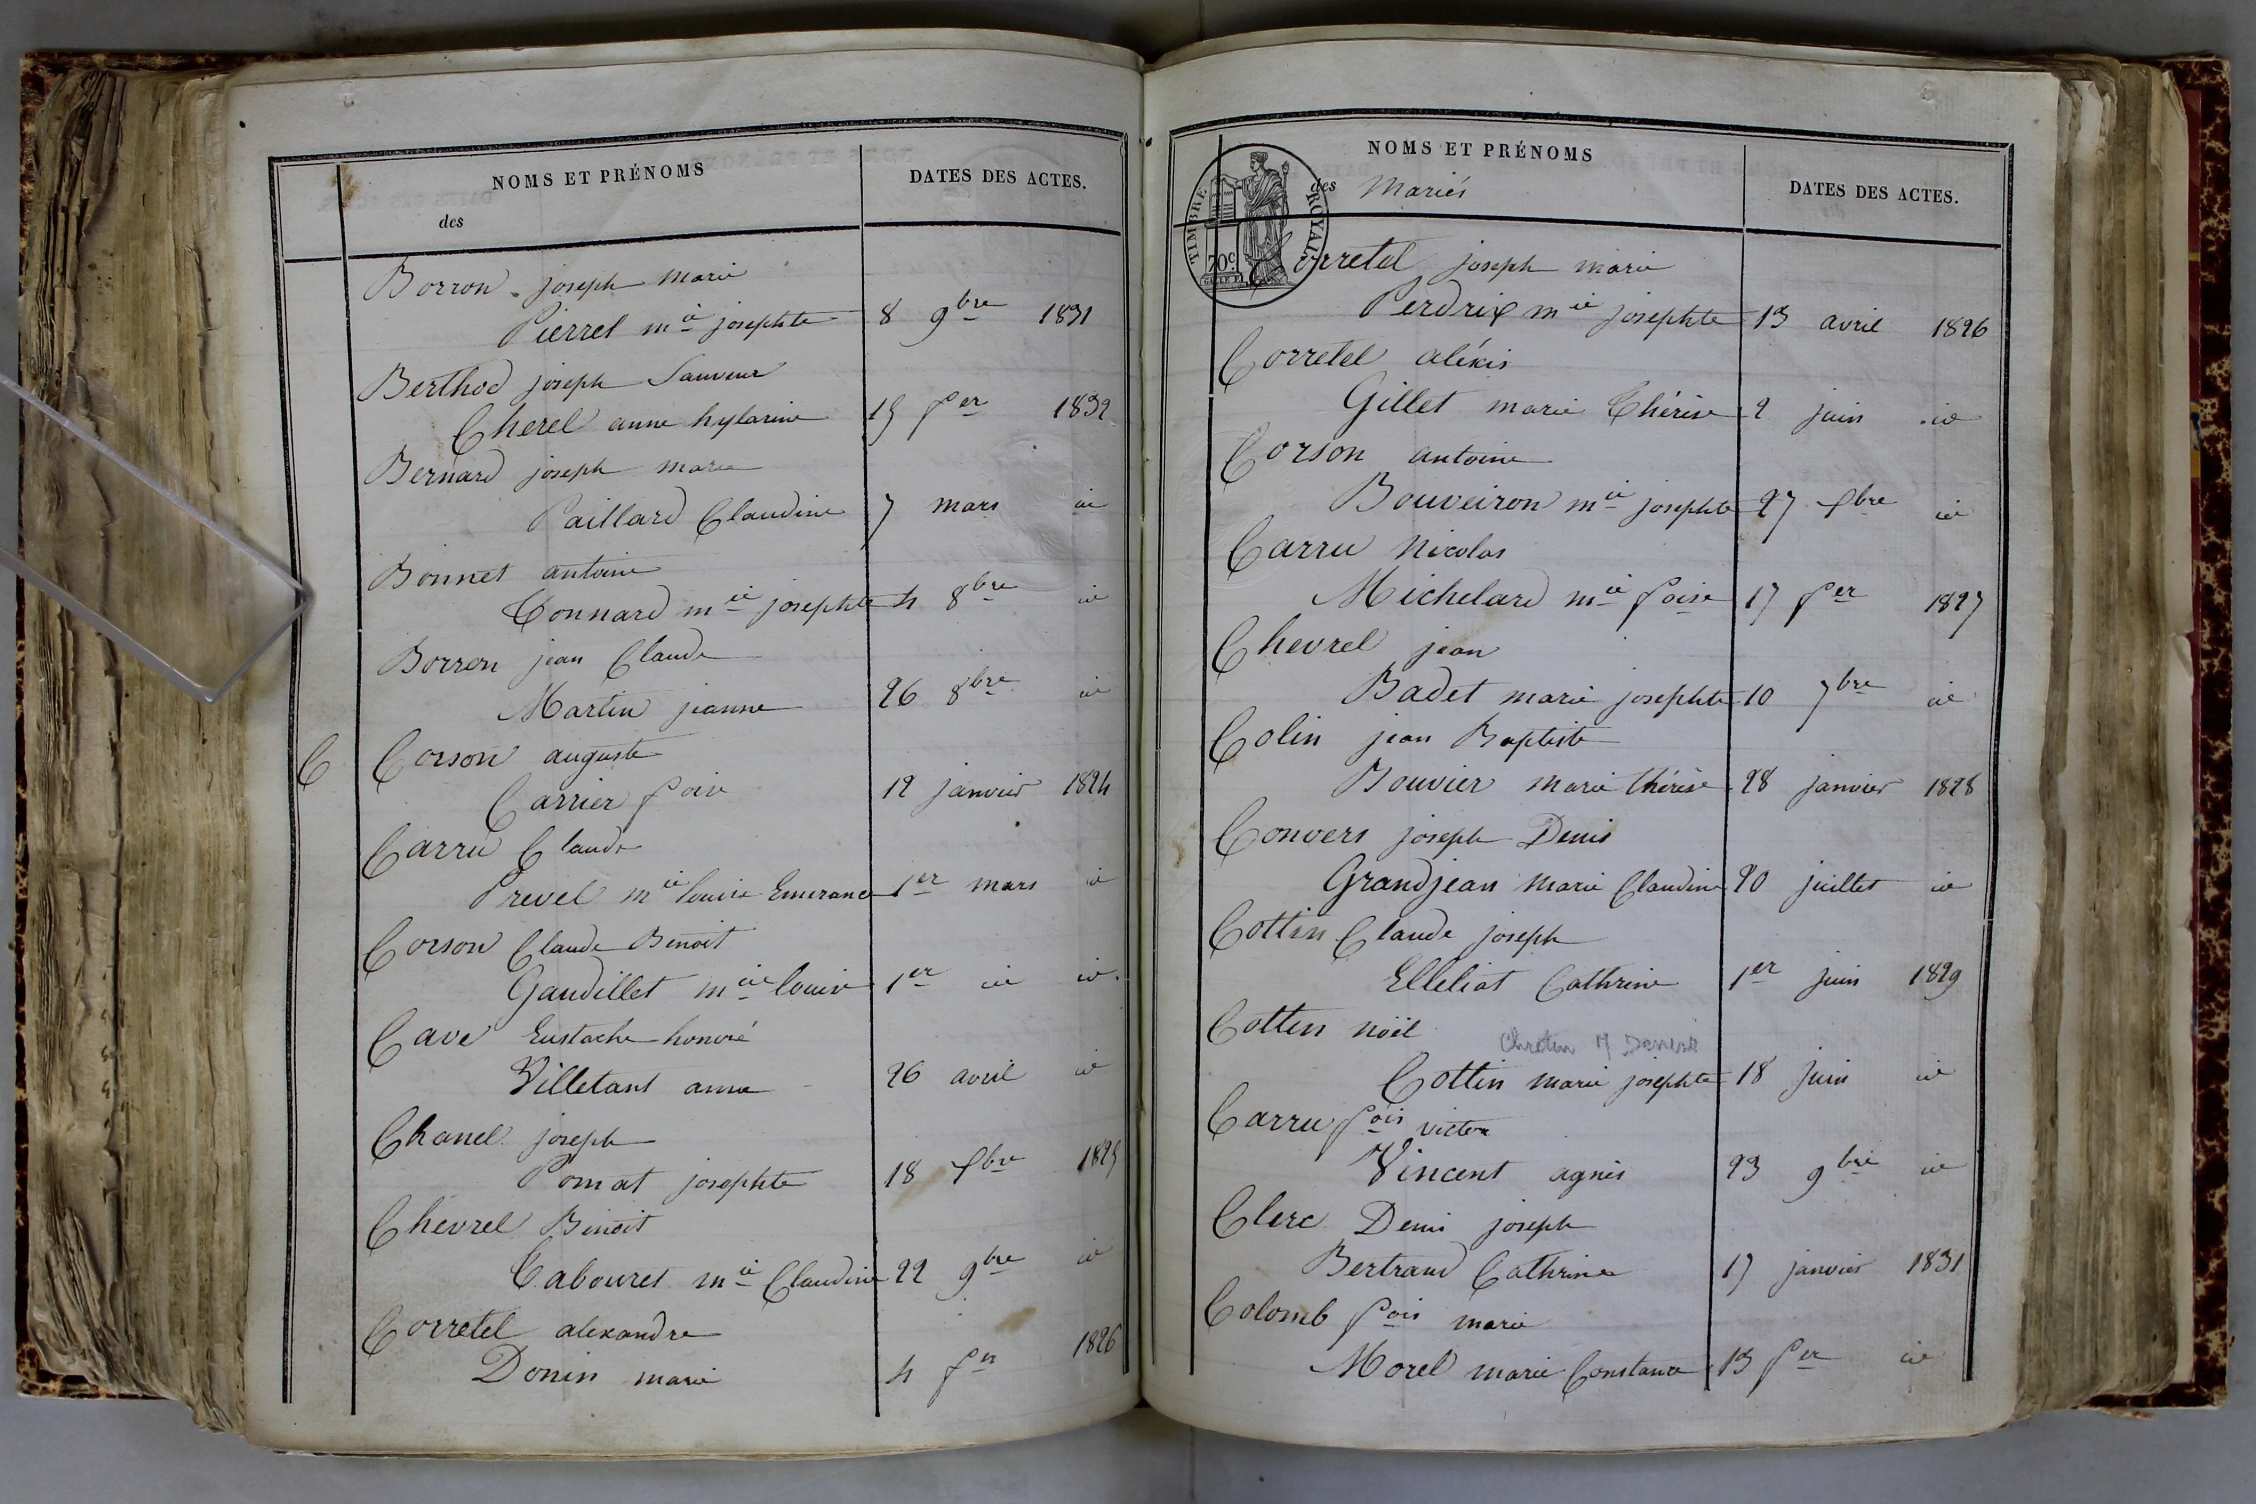 NOMS ET PRÉNOMS
des
DATES DES ACTES.
Borron joseph marie
Pierrel mie josephte 8 9bre 1831
Berthod joseph Sauveur
Cherel anne hylarine 15 fer 1832
Bernard joseph marie
Paillard Claudine 7 mars id
Bonnet antoine
Connard mie josephte 4 8bre id
Borron jean Claude
Martin jeanne 26 8bre id
C
Corson auguste
Carrier foise 12 janvier 1824
Carru Claude
Prevel mie louise Emerance 1er mars id
Corson Claude Benoit
Gaudillet mie louise 1er id id.
Cave Eustache honoré
Villetant anne 26 avril id
Chanel joseph
Pomat josephte 18 Xbre 1825
Chevrel Benoit
Cabouret mie Claudine 22 9bre id
Corretel alexandre
Donin marie 4 fer 1826
NOMS ET PRÉNOMS
des Mariés
DATES DES ACTES.
TIMBRE ROYAL
70c
Corretel joseph marie
Perdrix mie josephte 13 avril 1826
Corretel aléxis
Gillet marie Thérèse 2 juin id
Corson antoine
Bouveiron mie josephte 27 Xbre id
Carru Nicolas
Michelard mie foise 17 fer 1827
Chevrel jean
Badet marie josephte 10 7bre id
Colin jean Baptiste
Bouvier marie thérèse 28 janvier 1828
Convers joseph Denis
Grandjean Marie Claudine 20 juillet id
Cottin Claude joseph
Elleliat Cathrine 1er juin 1829
Cottin nöël
Chrétin M Denise
Cottin marie josephte 18 juin id
Carru fois victor
Vincent agnès 23 9bre id
Clerc Denis joseph
Bertrand Cathrine 17 janvier 1831
Colomb fois marie
Morel marie Constance 13 fer id